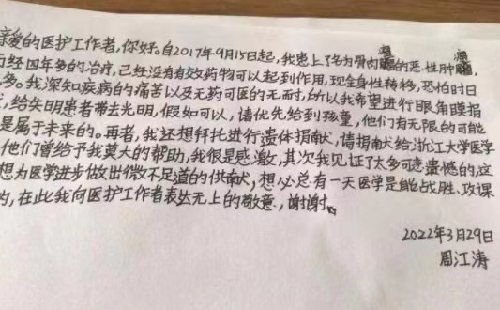 亲爱的医护工作者,你好。自2017年9月15日起,我患上了名为骨肉瘤的恶性肿瘤,
历经四年多的治疗,已经没有有效药物可以起到作用,现全身性转移,恐怕时日
多。我深知疾病的痛苦以及无药可医的无耐,所以我希望进行眼角膜捐
,给失明患者带去光明,假如可以,请优先给到孩童,他们有无限的可能
是属于未来的。再者,我还想拜托进行遗体捐献,请捐献给浙江大学医学
他们曾给予我莫大的帮助,我很是感激,其次我见证了太多可悲遗憾的这
想为医学进步做出微不足道的供献,想必总有一天医学是能战胜、攻课
的,在此我向医护工作者表达无上的敬意,谢谢。
2022年3月29日
周江涛